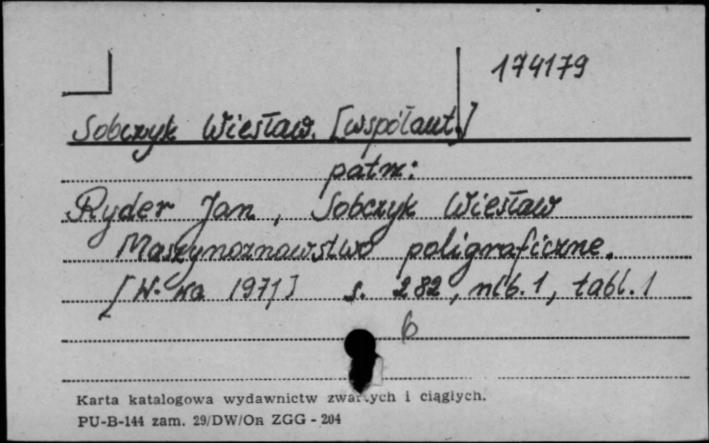 174179
Sobczyk Wiesław. [współaut.]
patrz:
Ryder Jan, Sobczyk Wiesław
Maszynoznawstwo poligraficzne.
[W-wa 1971] s. 282, nlb. 1, tabl. 1
6
Karta katalogowa wydawnictw zwartych i ciągłych.
PU-B-144 zam. 29/DW/On ZGG - 204